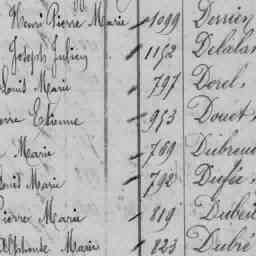 Henri Pierre Marie 1099 Dorrien
Joseph Julien 1152
Louis Marie 797 Dorel
Etienne 953 Douet
Marie 769
Louis Marie 792 Dufée
Pierre Marie 819
Alphonse Marie 823 Dubré